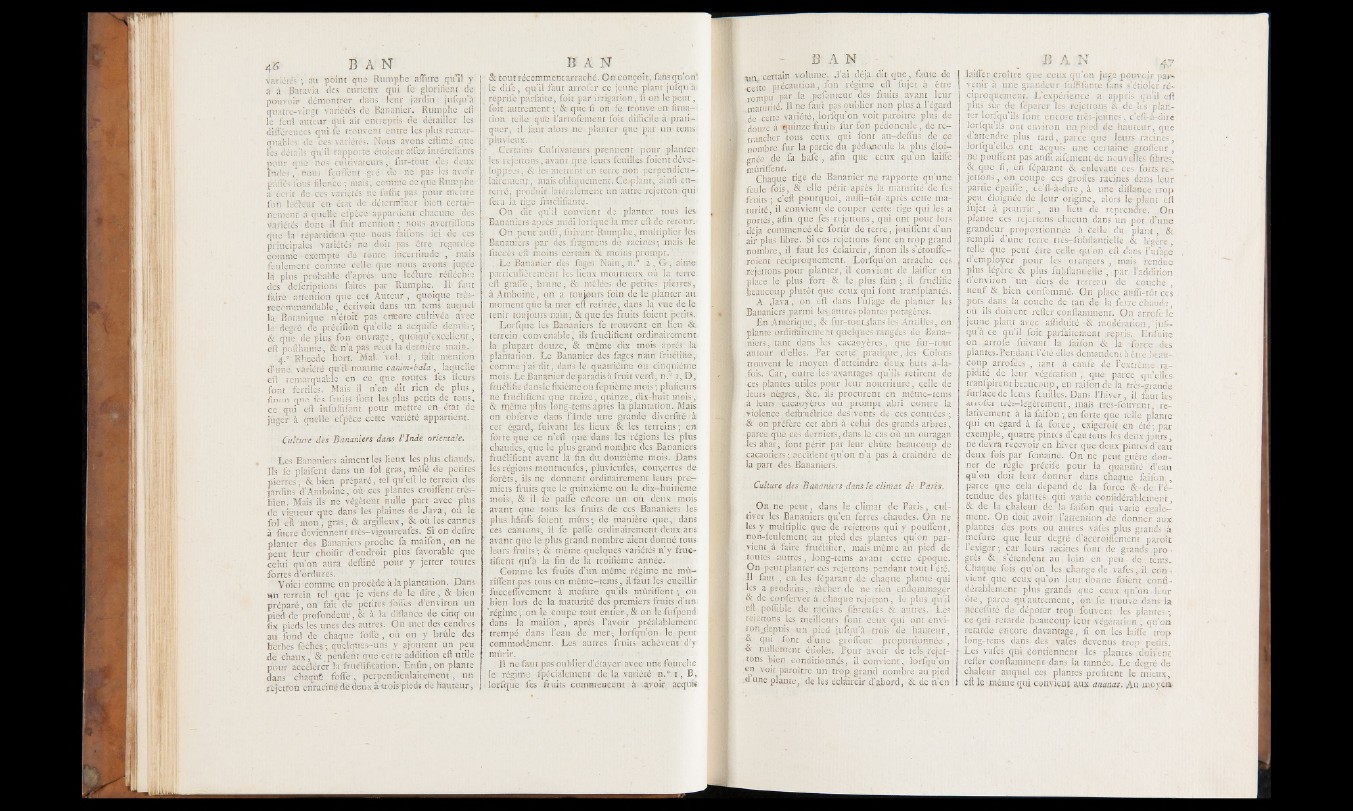 46 BAN
variétés ; au point que Rumphe assure qu'il y
a à Batavia des curieux qui se glorifient de
pouvoir démontrer dans leur jardin jusqu'à
quatre-vingt variétés de Bananier. Rumphe est
le seul auteur qui ait entrepris de détailler les
différences qui se trouvent entre les plus remar-
quables de ces variétés. Nous avons estimé que
les détails qu'il rapporte étoient assez intéressants
pour que nos cultivateurs, sur-tout des deux
Indes, nous sussent gré de ne pas les avoir
passés sous silence ; mais, comme ce que Rumphe
a écrit de ces variétés ne suffit pas pour mettre
son lecteur en état de déterminer bien certai-
nement à quelle espèce appartient chacune des
variétés dont il fait mention ; nous avertissons
que la répartition que nous faisons ici de ces
principales variétés ne doit pas être regardée
comme exempte de toute incertitude , mais
seulement comme celle que nous avons jugée
la plus probable d'après une lecture réfléchie
des descriptions faites par Rumphe. Il faut
faire attention que cet Auteur, quoique très-
recommandable, écrivoit dans un tems auquel
la Botanique n'étoit pas encore cultivée avec
le degré de précision qu'elle a acquise depuis ;
& que de plus son ouvrage, quoiqu'excellent,
est posthume, & n'a pas reçu la dernière main.
4.° Rheede hort. Mal. vol. 1, fait mention
d'une variété qu'il nomme cauim-bala, laquelle
est remarquable en ce que toutes ses fleurs
sont fertiles. Mais il n'en dit rien de plus,
sinon que ses fruits sont les plus petits de tous,
ce qui est insuffisant pour mettre en état de
juger à quelle espèce cette variété appartient.
Culture des Bananiers dans l'Inde orientale.
Les Bananiers aiment les lieux les plus chauds.
Ils se plaisent dans un sol gras, mêlé de petites
pierres, & bien préparé, tel qu'est le terrein des
jardins d'Amboine, où ces plantes croissent très-
bien. Mais ils ne végètent nulle part avec plus
de vigueur que dans les plaines de Java, où le
sol est mou, gras, & argilleux, & où les cannes
à sucre deviennent très-vigoureuses. Si on desire
planter des Bananiers proche sa maison, on ne
peut leur choisir d'endroit plus favorable que
celui qu'on aura destiné pour y jetter toutes
sortes d'ordures.
Voici comme on procède à la plantation. Dans
un terrein tel que je viens de le dire, & bien
préparé, on fait de petites fosses d'environ un
pied de profondeur, & à la distance de cinq ou
six pieds les unes des autres. On met des cendres
au fond de chaque fosse, où on y brûle des
herbes sèches ; quelques-uns y ajoutent un peu
de chaux, & pensent que cette addition est utile
pour accélérer la fructification. Enfin, on plante
dans chaque fosse, perpendiculairement, un
rejetton enraciné de deux à trois pieds de hauteur,
BAN
& tout récemment arraché. On conçoit, sans qu'on
le dise, qu'il faut arroser ce jeune plant jusqu'à
reprise parfaite, soit par irrigation, si on le peut,
soit autrement ; & que si on se trouve en situa-
tion telle que l'arrosement soit difficile à prati-
quer, il faut alors ne planter que par un tems
pluvieux.
Certains Cultivateurs prennent pour planter
les rejettons, avant que leurs feuilles soient déve-
loppées, & les mettent en terre non perpendicu-
lairement, mais obliquement. Ce plant, ainsi en-
terré, produit latéralement un autre rejetton qui
sera la tige fructifiante.
On dit qu'il convient de planter tous les
Bananiers après midi lorsque la mer est de retour.
On peut aussi, suivant Rumphe, multiplier les
Bananiers par des fragmens de racines ; mais le
succès est moins certain & moins prompt.
Le Bananier des sages Nain, n.° 2, G, aime
particulièrement les lieux montueux où la terre
est grasse, brune, & mêlées de petites pierres,
à Amboine, on a toujours soin de le planter au
moment que la mer est retirée, dans la vue de le
tenir toujours nain, & que ses fruits soient petits.
Lorsque les Bananiers se trouvent en lieu &
terrein convenable, ils fructifient ordinairement
la plupart douze, & même dix mois après la
plantation. Le Bananier des sages nain fructifie,
comme j'ai dit, dans le quatrième ou cinquième
mois. Le Bananier de paradis à fruit verd, n.° 1, D,
fructifie dans le sixième ou septième mois ; plusieurs
ne fructifient que treize, quinze, dix-huit mois,
& même plus long-tems après la plantation. Mais
on observe dans l'Inde une grande diversité à
cet égard, suivant les lieux & les terreins ; en
sorte que ce n'est que dans les régions les plus
chaudes, que le plus grand nombre des Bananiers
fructifient avant la fin du douzième mois. Dans
les régions montueuses, pluvieuses, couvertes de
forêts, ils ne donnent ordinairement leurs pre-
miers fruits que le quinzième ou le dix-huitième
mois, & il se passe encore un ou deux mois
avant que tous les fruits de ces Bananiers les
plus hâtifs soient mûrs ; de manière que, dans
ces cantons, il se passe ordinairement deux ans
avant que le plus grand nombre aient donné tous
leurs fruits ; & même quelques variétés n'y fruc-
tifient qu'à la fin de la troisième année.
Comme les fruits d'un même régime ne mû-
rissent pas tous en même-tems, il faut les cueillir
successivement à mesure qu'ils mûrissent ; ou
bien lors de la maturité des premiers fruits d'un
régime, on le coupe tout entier, & on le suspend
dans la maison, après l'avoir préalablement
trempé dans l'eau de mer, lorsqu'on le peut
commodément. Les autres fruits achèvent d'y
mûrir.
Il ne faut pas oublier d'étayer avec une fourche
le régime spécialement de la variété n.° 1, B,
lorsque ses fruits commencent à avoir acquis
BAN
un certain volume. J'ai déjà dit que, faute de
cette précaution, son régime est sujet à être
rompu par la pesanteur des fruits avant leur
maturité. Il ne faut pas oublier non plus à l'égard
de cette variété, lorsqu'on voit paroître plus de
douze à quinze fruits sur son pédoncule, de re-
trancher tous ceux qui sont au-dessus de ce
nombre sur la partie du pédoncule la plus éloi-
gnée de sa base, afin que ceux qu'on laisse
mûrissent.
Chaque tige de Bananier ne rapporte qu'une
seule fois, & elle périt après la maturité de ses
fruits ; c'est pourquoi, aussi-tôt après cette ma-
turité, il convient de couper cette tige qui les a
portés, afin que ses rejettons, qui ont pour lors
déjà commencé de sortir de terre, jouissent d'un
air plus libre. Si ces rejettons sont en trop grand
nombre, il faut les éclaircir, sinon ils s'étouffe-
roient réciproquement. Lorsqu'on arrache ces
rejettons pour planter, il convient de laisser en
place le plus fort & le plus sain ; il fructifie
beaucoup plutôt que ceux qui sont transplantés.
A Java, on est dans l'usage de planter les
Bananiers parmi les autres plantes potagères.
En Amérique, & sur-tout dans les Antilles, on
plante ordinairement quelques rangées de Bana-
niers, tant dans les cacaoyères, que sur-tout
autour d'elles. Par cette pratique, les Colons
trouvent le moyen d'atteindre deux buts à-la-
fois. Car, outre les avantages qu'ils retirent de
ces plantes utiles pour leur nourriture, celle de
leurs nègres, &c. ils procurent en même-tems
à leurs cacaoyères un prompt abri contre la
violence destructrice des vents de ces contrées ;
& on préfère cet abri à celui des grands arbres,
parce que ces derniers, dans le cas où un ouragan
les abat, font périr par leur chûte beaucoup de
cacaotiers ; accident qu'on n'a pas à craindre de
la part des Bananiers.
Culture des Bananiers dans le climat de Paris.
On ne peut, dans le climat de Paris, cul-
tiver les Bananiers qu'en serres chaudes. On ne
les y multiplie que de rejettons qui y poussent,
non-seulement au pied des plantes qu'on par-
vient à faire fructifier, mais même au pied de
toutes autres, long-tems avant cette époque.
On peut planter ces rejettons pendant tout l'été.
Il faut, en les séparant de chaque plante qui
les a produits, tâcher de ne rien endommager
& de conserver à chaque rejetton, le plus qu'il
est possible de racines fibreuses & autres. Les
rejettons les meilleurs sont ceux qui ont envi-
ron depuis un pied jusqu'à trois de hauteur,
& qui sont d'une grosseur proportionnée,
& nullement étiolés. Pour avoir de tels rejet-
tons bien conditionnés, il convient, lorsqu'on
en voit paroître un trop grand nombre au pied
d'une plante, de les éclaircir d'abord, & de n'en
BAN 47
laisser croître que ceux qu'on juge pouvoir par-
venir à une grandeur suffisante sans s'étioler ré-
ciproquement. L'expérience a appris qu'il est
plus sûr de séparer les rejettons & de les plan-
ter lorsqu'ils sont encore très-jeunes, c'est-à-dire
lorsqu'ils ont environ un pied de hauteur, que
d'attendre plus tard, parce que leurs racines,
lorsqu'elles ont acquis une certaine grosseur,
ne poussent pas aussi aisément de nouvelles fibres,
& que si, en séparant & enlevant ces forts re-
jettons, on coupe ces grosses racines dans leur
partie épaisse, c'est-à-dire, à une distance trop
peu éloignée de leur origine, alors le plant est
sujet à pourrir, au lieu de reprendre. On
plante ces rejettons chacun dans un pot d'une
grandeur proportionnée à celle du plant, &
rempli d'une terre très-substantielle & légère,
telle que peut être celle qu'on est dans l'usage
d'employer pour les orangers, mais rendue
plus légère & plus substantielle, par l'addition
d'environ un tiers de terreau de couche,
neuf & bien consommé. On place aussi-tôt ces
pots dans la couche de tan de la serre chaude,
où ils doivent rester constamment. On arrose le
jeune plant avec assiduité & modération, jus-
qu'à ce qu'il soit parfaitement repris. Ensuite
on arrose suivant la saison & la force des
plantes. Pendant l'été elles demandent à être beau-
coup arrosées, tant à cause de l'extrême ra-
pidité de leur végétation, que parce qu'elles
transpirent beaucoup, en raison de la très-grande
surface de leurs feuilles. Dans l'hiver, il faut les
arroser très-légèrement, mais très-souvent, re-
lativement à la saison ; en sorte que telle plante
qui eu égard à sa force, exigeroit en été ; par
exemple, quatre pintes d'eau tous les deux jours,
ne devra recevoir en hiver que deux pintes d'eau
deux fois par semaine. On ne peut guère don-
ner de règle précise pour la quantité d'eau
qu'on doit leur donner dans chaque saison,
parce que cela dépend de la force & de l'é-
tendue des plantes qui varie considérablement,
& de la chaleur de la saison qui varie égale-
ment. On doit avoir l'attention de donner aux
plantes des pots ou autres vases plus grands à
mesure que leur degré d'accroissement paroît
l'exiger ; car leurs racines font de grands pro-
grès & s'étendent au loin en peu de tems.
Chaque fois qu'on les change de vases, il con-
vient que ceux qu'on leur donne soient consi-
dérablement plus grands que ceux qu'on leur
ôte, parce qu'autrement, on se trouve dans la
nécessité de dépoter trop souvent les plantes ;
ce qui retarde beaucoup leur végétation, qu'on
retarde encore davantage, si on les laisse trop
long-tems dans des vases devenus trop petits.
Les vases qui contiennent les plantes doivent
rester constamment dans la tannée. Le degré de
chaleur auquel ces plantes profitent le mieux,
est le même qui convient aux ananas. Au moyen